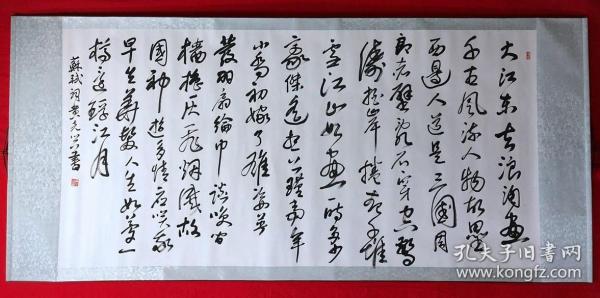 大江东去浪淘尽
千古风流人物故垒
西邊人道是三國周
郎赤壁乱石穿空驚
涛拍岸捲起千堆
雪江山如画一时多少
豪傑遥想公瑾当年
小喬初嫁了雄姿英
發羽扇綸巾談笑间
檣橹灰飞烟滅故
國神遊多情应笑我
早生華髮人生如夢一
樽还酹江月
蘇軾詞 黄 書
孔夫子旧书网
www.kongfz.com